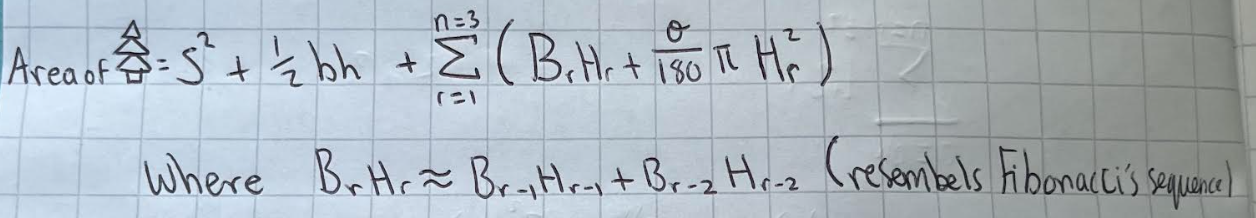 Area of = S² + ½ bh + Σ_{r=1}^{n=3} ( B_r H_r + θ/180 π H_r² )
Where B_r H_r ≈ B_{r-1} H_{r-1} + B_{r-2} H_{r-2} (resembels Fibonacci's sequence)